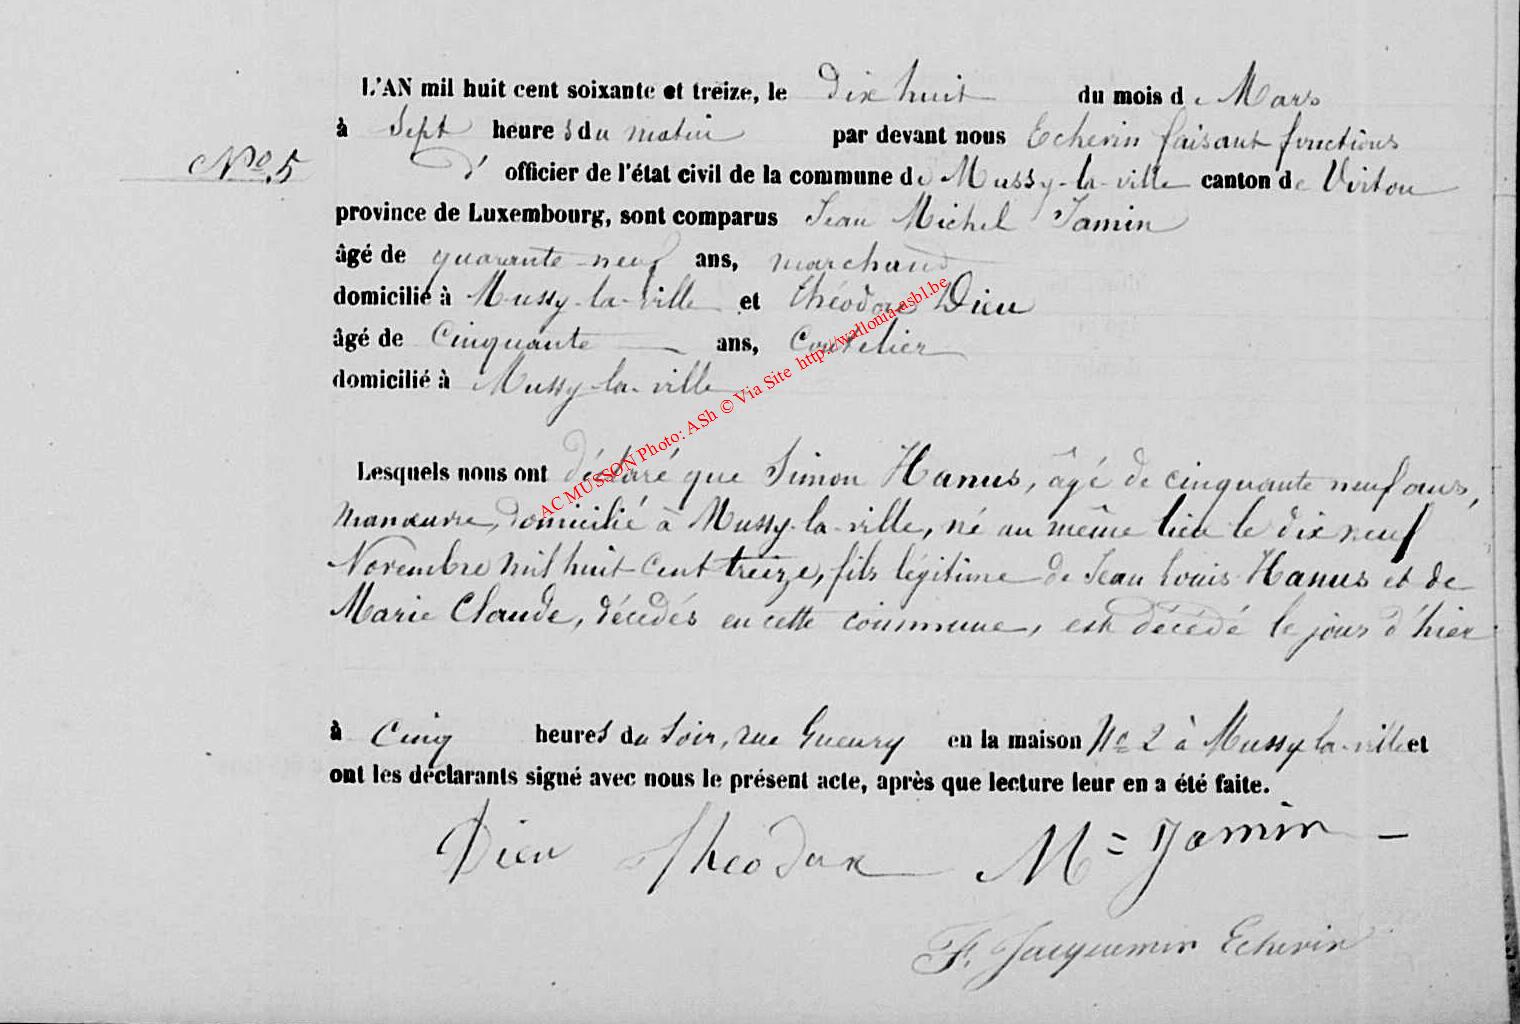 L'AN mil huit cent soixante et treize, le dix huit du mois de Mars
à Sept heures du matin par devant nous Echevin faisant fonctions
No 5
d' officier de l'état civil de la commune de Mussy-la-ville canton de Virton
province de Luxembourg, sont comparus Jean Michel Jamin
âgé de quarante-neuf ans, marchand
domicilié à Mussy-la-ville et Théodore Dieu
âgé de Cinquante ans, Coutelier
domicilié à Mussy-la-ville
AC MUSSON Photo: ASh © Via Site http://wallonia-asbl.be
Lesquels nous ont déclaré que Simon Hanus, âgé de cinquante neuf ans,
manœuvre, domicilié à Mussy-la-ville, né au même lieu le dix neuf
Novembre mil huit cent treize, fils légitime de Jean Louis Hanus et de
Marie Claude, décédés en cette commune, est décédé le jour d'hier
à Cinq heures du soir, rue Gueury en la maison No 2 à Mussy-la-ville et
ont les déclarants signé avec nous le présent acte, après que lecture leur en a été faite.
Dieu Théodore M= Jamin
F. Jacquemin Echevin